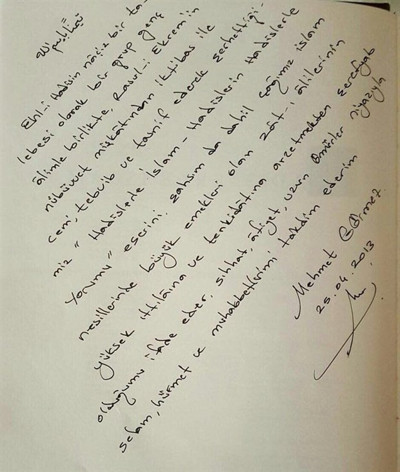 Ehl-i Hadisin nâçiz bir ta-
lebesi olarak bir grup genç
âlimle birlikte, Rasul-i Ekrem'in
nübüvvet mişkatından iktibas ile
cem, tebvib ve tasnif ederek şerhettiği-
miz "Hadislerle İslam - Hadislerin Hadislerle
Yorumu" eserini, şahsım da dahil çağımız islam
nesillerinde büyük emekleri olan zât-ı âlilerinin
yüksek ittilâına ve tenkidatına arzetmekten şerefyab
olduğumu ifade eder, sıhhat, afiyet, uzun ömürler niyazıyla
selam, hürmet ve muhabbetlerimi takdim ederim
Mehmet Görmez
25.04.2013